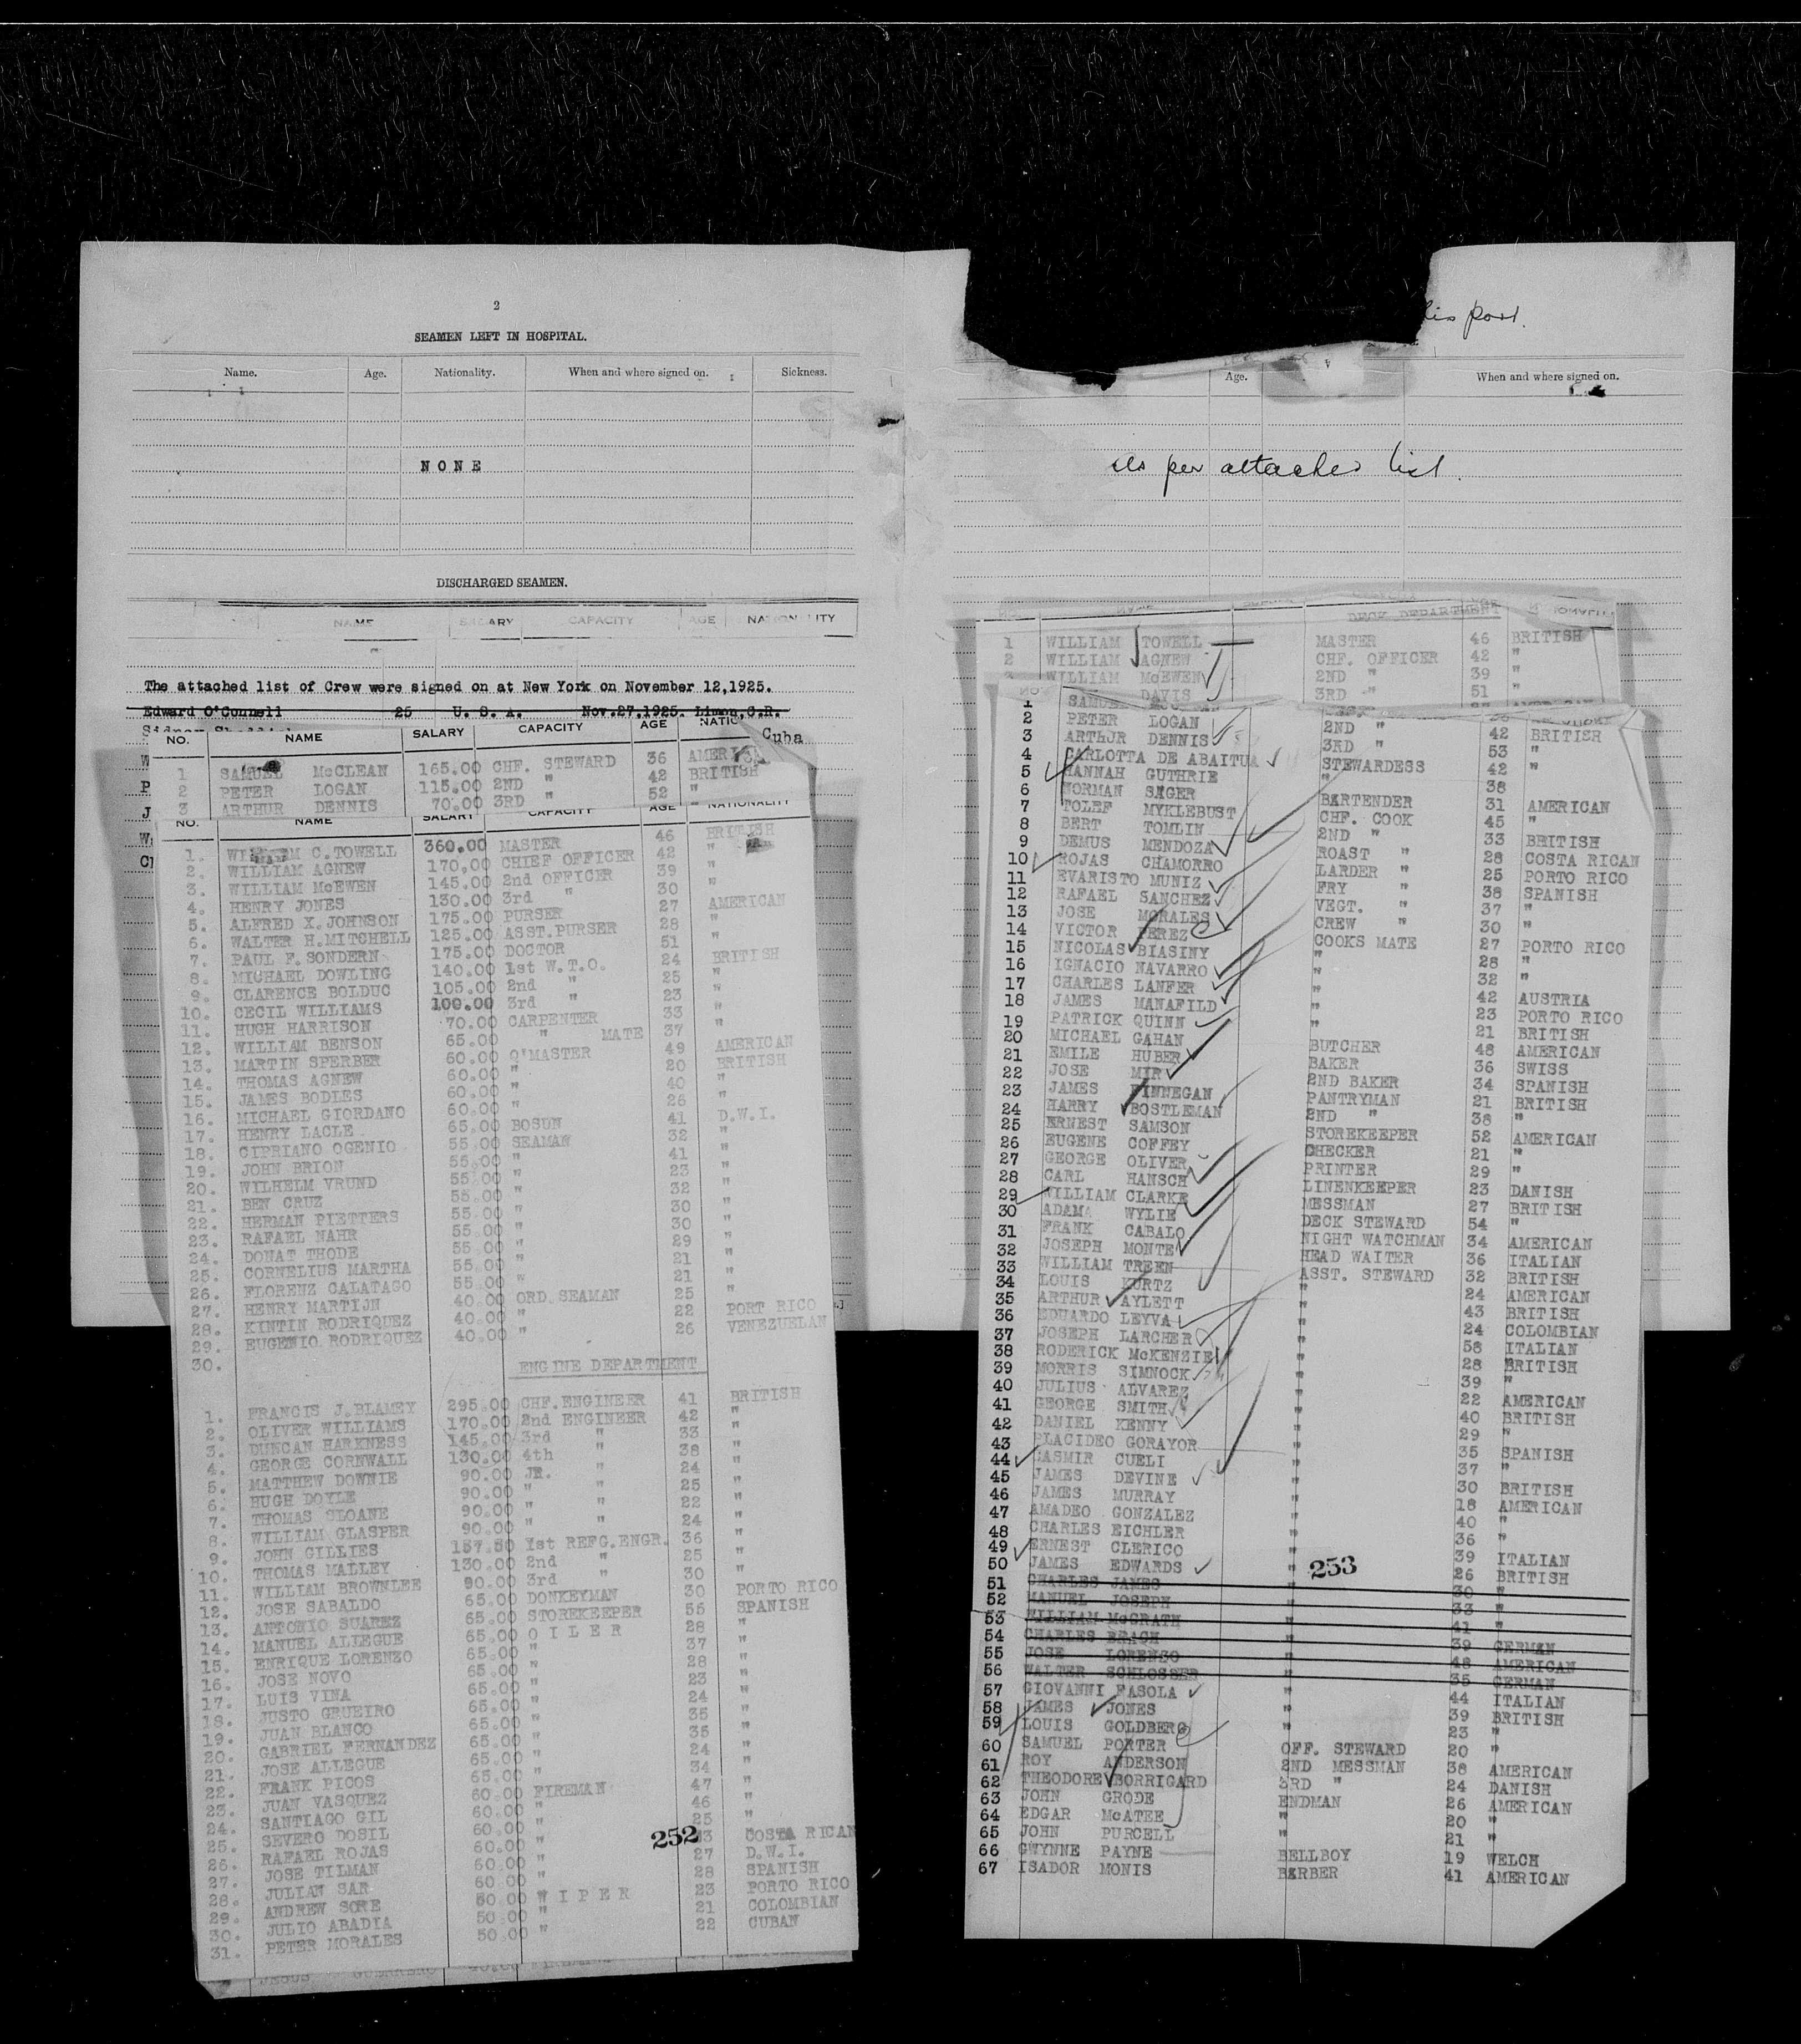 2
SEAMEN LEFT IN HOSPITAL.
Name. Age. Nationality. When and where signed on. Sickness.
NONE
DISCHARGED SEAMEN.
NAME SALARY CAPACITY AGE NATIONALITY
The attached list of Crew were signed on at New York on November 12,1925.
Edward O'Connell 25 U. S. A. Nov.27,1925. Limon,C.R.
Cuba
NO. NAME SALARY CAPACITY AGE
1 SAMUEL McCLEAN 165.00 CHF. STEWARD 36 AMERICAN
2 PETER LOGAN 115.00 2ND " 42 BRITISH
3 ARTHUR DENNIS 70.00 3RD " 52 "
NO. NAME SALARY CAPACITY AGE NATIONALITY
1. WILLIAM C.TOWELL 360.00 MASTER 46 BRITISH
2. WILLIAM AGNEW 170.00 CHIEF OFFICER 42 "
3. WILLIAM McEWEN 145.00 2nd OFFICER 39 "
4. HENRY JONES 130.00 3rd " 30 "
5. ALFRED X.JOHNSON 175.00 PURSER 27 AMERICAN
6. WALTER H.MITCHELL 125.00 ASST.PURSER 28 "
7. PAUL F.SONDERN 175.00 DOCTOR 51 "
8. MICHAEL DOWLING 140.00 1st W.T.O. 24 BRITISH
9. CLARENCE BOLDUC 105.00 2nd " 25 "
10. CECIL WILLIAMS 100.00 3rd " 23 "
11. HUGH HARRISON 70.00 CARPENTER 33 "
12. WILLIAM BENSON 65.00 " MATE 37 "
13. MARTIN SPERBER 60.00 Q'MASTER 49 AMERICAN
14. THOMAS AGNEW 60.00 " 20 BRITISH
15. JAMES BODLES 60.00 " 40 "
16. MICHAEL GIORDANO 60.00 " 26 "
17. HENRY LACLE 65.00 BOSUN 41 D.W.I.
18. CIPRIANO OGENIO 55.00 SEAMAN 32 "
19. JOHN BRION 55.00 " 41 "
20. WILHELM VRUND 55.00 " 23 "
21. BEN CRUZ 55.00 " 32 "
22. HERMAN PIETTERS 55.00 " 30 "
23. RAFAEL NAHR 55.00 " 30 "
24. DONAT THODE 55.00 " 29 "
25. CORNELIUS MARTHA 55.00 " 21 "
26. FLORENZ CALATAGO 55.00 " 21 "
27. HENRY MARTIJN 40.00 ORD.SEAMAN 25 "
28. KINTIN RODRIQUEZ 40.00 " 22 PORT RICO
29. EUGENIO RODRIQUEZ 40.00 " 26 VENEZUELAN
30.
ENGINE DEPARTMENT
1. FRANCIS J.BLAMEY 295.00 CHF.ENGINEER 41 BRITISH
2. OLIVER WILLIAMS 170.00 2nd ENGINEER 42 "
3. DUNCAN HARKNESS 145.00 3rd " 33 "
4. GEORGE CORNWALL 130.00 4th " 38 "
5. MATTHEW DOWNIE 90.00 JR. " 24 "
6. HUGH DOYLE 90.00 " " 25 "
7. THOMAS SLOANE 90.00 " " 22 "
8. WILLIAM GLASPER 90.00 " " 24 "
9. JOHN GILLIES 157.50 1st REFG.ENGR. 36 "
10. THOMAS MALLEY 130.00 2nd " 25 "
11. WILLIAM BROWNLEE 90.00 3rd " 30 "
12. JOSE SABALDO 65.00 DONKEYMAN 30 PORTO RICO
13. ANTONIO SUAREZ 65.00 STOREKEEPER 55 SPANISH
14. MANUEL ALLEGUE 65.00 O I L E R 28 "
15. ENRIQUE LORENZO 65.00 " 37 "
16. JOSE NOVO 65.00 " 28 "
17. LUIS VINA 65.00 " 23 "
18. JUSTO GRUEIRO 65.00 " 24 "
19. JUAN BLANCO 65.00 " 35 "
20. GABRIEL FERNANDEZ 65.00 " 35 "
21. JOSE ALLEGUE 65.00 " 24 "
22. FRANK PICOS 65.00 " 34 "
23. JUAN VASQUEZ 60.00 FIREMAN 47 "
24. SANTIAGO GIL 60.00 " 46 "
25. SEVERO DOSIL 60.00 " 25 "
26. RAFAEL ROJAS 60.00 " 252 COSTA RICAN
27. JOSE TILMAN 60.00 " 27 D.W.I.
28. JULIAN SAR 60.00 " 28 SPANISH
29. ANDREW SORE 50.00 W I P E R 23 PORTO RICO
30. JULIO ABADIA 50.00 " 21 COLOMBIAN
31. PETER MORALES 50.00 " 22 CUBAN
JESUS GUERRERO
port.
Age. When and where signed on.
As per attached list.
DECK DEPARTMENT
1 WILLIAM TOWELL MASTER 46 BRITISH
2 WILLIAM AGNEW CHF. OFFICER 42 "
WILLIAM McEWEN 2ND " 39 "
DAVIS 3RD " 51 "
1 SAMUEL
2 PETER LOGAN 2ND " 42 BRITISH
3 ARTHUR DENNIS 3RD " 53 "
4 CARLOTTA DE ABAITUA STEWARDESS 42 "
5 HANNAH GUTHRIE " 38
6 NORMAN SAGER BARTENDER 31 AMERICAN
7 TOLEF MYKLEBUST CHF. COOK 45 "
8 BERT TOMLIN 2ND " 33 BRITISH
9 DEMUS MENDOZA ROAST " 28 COSTA RICAN
10 ROJAS CHAMORRO LARDER " 25 PORTO RICO
11 EVARISTO MUNIZ FRY " 38 SPANISH
12 RAFAEL SANCHEZ VEGT. " 37 "
13 JOSE MORALES CREW " 30 "
14 VICTOR PEREZ COOKS MATE 27 PORTO RICO
15 NICOLAS BIASINY " 28 "
16 IGNACIO NAVARRO " 32 "
17 CHARLES LANFER " 42 AUSTRIA
18 JAMES MANAFILD " 23 PORTO RICO
19 PATRICK QUINN " 21 BRITISH
20 MICHAEL GAHAN BUTCHER 48 AMERICAN
21 EMILE HUBER BAKER 36 SWISS
22 JOSE MIR 2ND BAKER 34 SPANISH
23 JAMES FINNEGAN PANTRYMAN 21 BRITISH
24 HARRY BOSTLEMAN 2ND " 38 "
25 ERNEST SAMSON STOREKEEPER 52 AMERICAN
26 EUGENE COFFEY CHECKER 21 "
27 GEORGE OLIVER PRINTER 29 "
28 CARL HANSCH LINENKEEPER 23 DANISH
29 WILLIAM CLARKE MESSMAN 27 BRITISH
30 ADAMA WYLIE DECK STEWARD 54 "
31 FRANK CABALO NIGHT WATCHMAN 34 AMERICAN
32 JOSEPH MONTE HEAD WAITER 36 ITALIAN
33 WILLIAM TREEN ASST. STEWARD 32 BRITISH
34 LOUIS KURTZ " 24 AMERICAN
35 ARTHUR AYLETT " 43 BRITISH
36 EDUARDO LEYVA " 24 COLOMBIAN
37 JOSEPH LARCHER " 58 ITALIAN
38 RODERICK McKENZIE " 28 BRITISH
39 MORRIS SIMNOCK " 39 "
40 JULIUS ALVAREZ " 22 AMERICAN
41 GEORGE SMITH " 40 BRITISH
42 DANIEL KENNY " 29 "
43 PLACIDEO GORAYOR " 35 SPANISH
44 CASMIR CUELI " 37 "
45 JAMES DEVINE " 30 BRITISH
46 JAMES MURRAY " 18 AMERICAN
47 AMADEO GONZALEZ " 40 "
48 CHARLES EICHLER " 36 "
49 ERNEST CLERICO " 39 ITALIAN
50 JAMES EDWARDS " 253 26 BRITISH
51 CHARLES JAMES " 30 "
52 MANUEL JOSEPH " 33 "
53 WILLIAM McGRATH " 41 "
54 CHARLES BRACH " 39 GERMAN
55 JOSE LORENSO " 48 AMERICAN
56 WALTER SCHLOSSER " 35 GERMAN
57 GIOVANNI FASOLA " 44 ITALIAN
58 JAMES JONES " 39 BRITISH
59 LOUIS GOLDBERG " 23 "
60 SAMUEL PORTER OFF. STEWARD 20 "
61 ROY ANDERSON 2ND MESSMAN 38 AMERICAN
62 THEODORE BORRIGARD 3RD " 24 DANISH
63 JOHN GRODE ENDMAN 26 AMERICAN
64 EDGAR McATEE " 20 "
65 JOHN PURCELL " 21 "
66 GWYNNE PAYNE BELLBOY 19 WELCH
67 ISADOR MONIS BARBER 41 AMERICAN